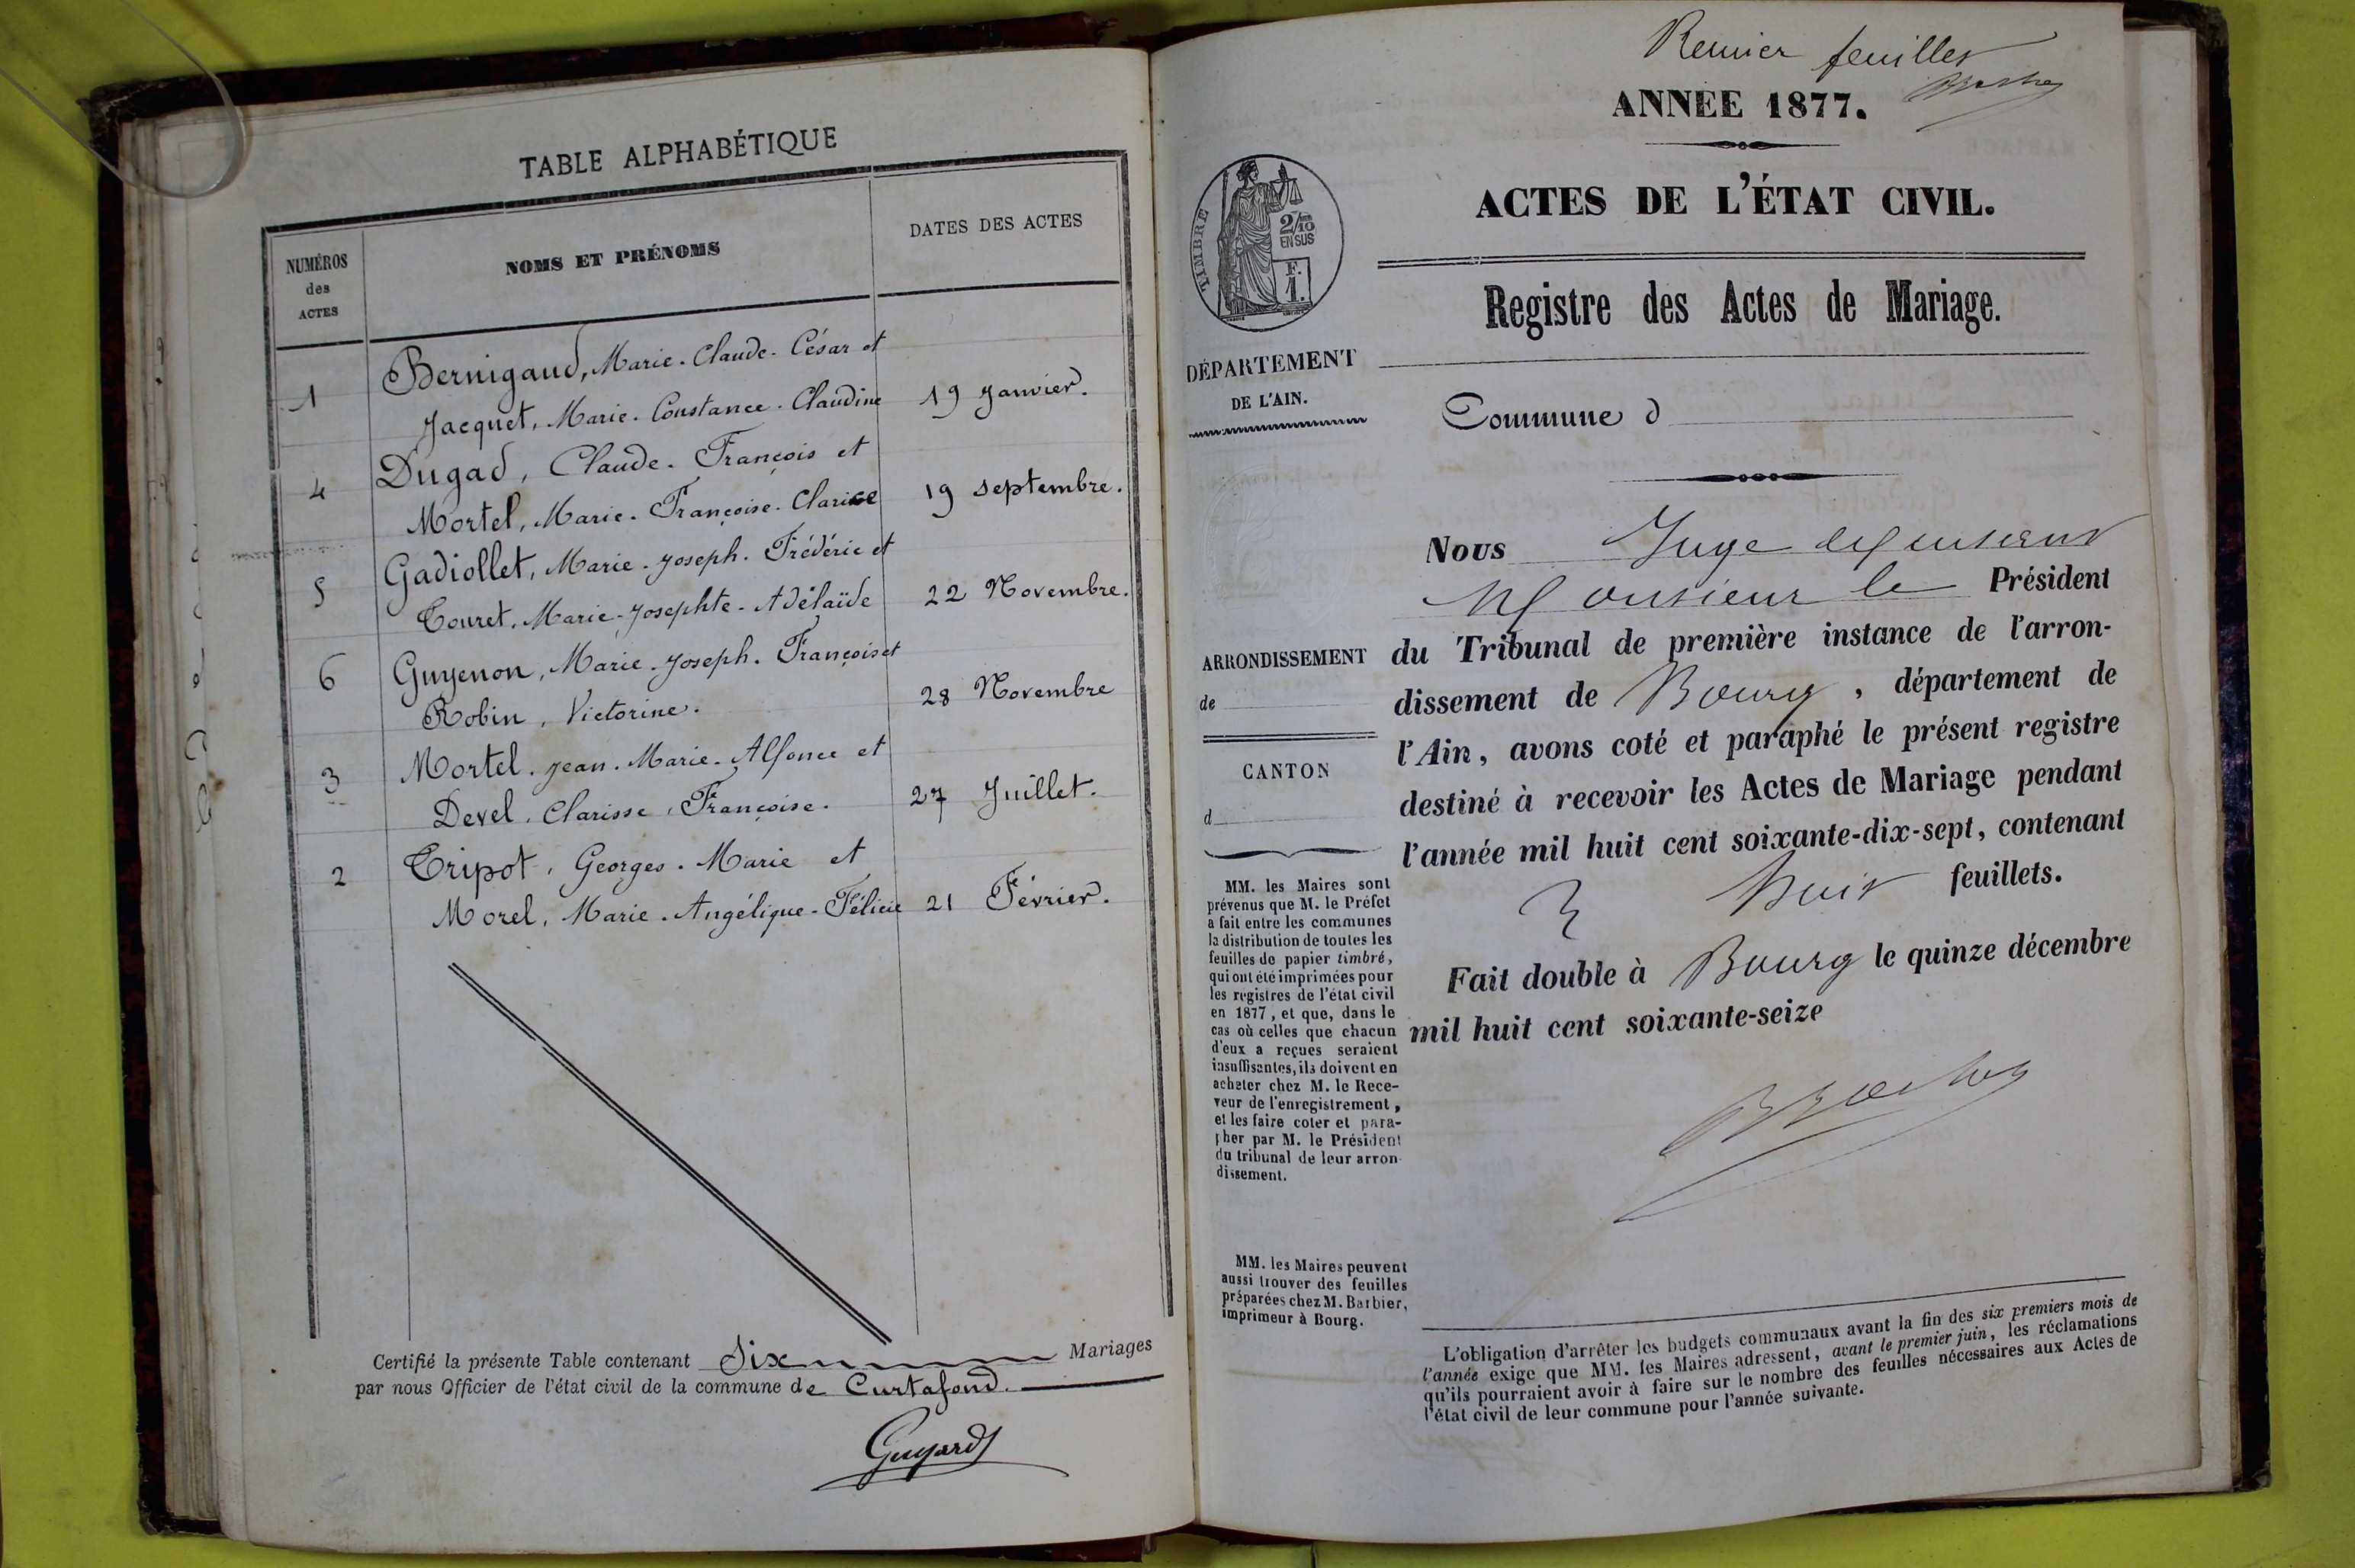 TABLE ALPHABÉTIQUE
NUMÉROS
des
ACTES
NOMS ET PRÉNOMS
DATES DES ACTES
Bernigaud, Marie-Claude-César et
1
Jacquet, Marie-Constance-Claudine
19 Janvier.
Dugad, Claude-François et
4
Mortel, Marie-Françoise-Clarice
19 septembre.
Gadiollet, Marie-Joseph-Frédéric et
5
Touret, Marie-Josephte-Adélaïde
22 Novembre.
6
Guyenon, Marie-Joseph-François et
Robin, Victorine.
28 Novembre
3
Mortel, Jean-Marie-Alfonce et
Devel, Clarisse, Françoise.
27 Juillet.
2
Tripot, Georges-Marie et
Morel, Marie-Angélique-Félicie
21 Février.
Certifié la présente Table contenant Six Mariages
par nous Officier de l'état civil de la commune de Curtafond.
Guyard
feuillet
ANNÉE 1877.
ACTES DE L'ÉTAT CIVIL.
Registre des Actes de Mariage.
TIMBRE
2/10
EN SUS
F.
1.
DÉPARTEMENT
DE L'AIN.
Commune d
ARRONDISSEMENT
de
CANTON
d
Nous Juge
Monsieur le Président
du Tribunal de première instance de l'arron-
dissement de Bourg, département de
l'Ain, avons coté et paraphé le présent registre
destiné à recevoir les Actes de Mariage pendant
l'année mil huit cent soixante-dix-sept, contenant
huit feuillets.
Fait double à Bourg le quinze décembre
mil huit cent soixante-seize
MM. les Maires sont
prévenus que M. le Préfet
a fait entre les communes
la distribution de toutes les
feuilles de papier timbré,
qui ont été imprimées pour
les registres de l'état civil
en 1877, et que, dans le
cas où celles que chacun
d'eux a reçues seraient
insuffisantes, ils doivent en
acheter chez M. le Rece-
veur de l'enregistrement,
et les faire coter et para-
pher par M. le Président
du tribunal de leur arron-
dissement.
MM. les Maires peuvent
aussi trouver des feuilles
préparées chez M. Barbier,
imprimeur à Bourg.
L'obligation d'arrêter les budgets communaux avant la fin des six premiers mois de
l'année exige que MM. les Maires adressent, avant le premier juin, les réclamations
qu'ils pourraient avoir à faire sur le nombre des feuilles nécessaires aux Actes de
l'état civil de leur commune pour l'année suivante.